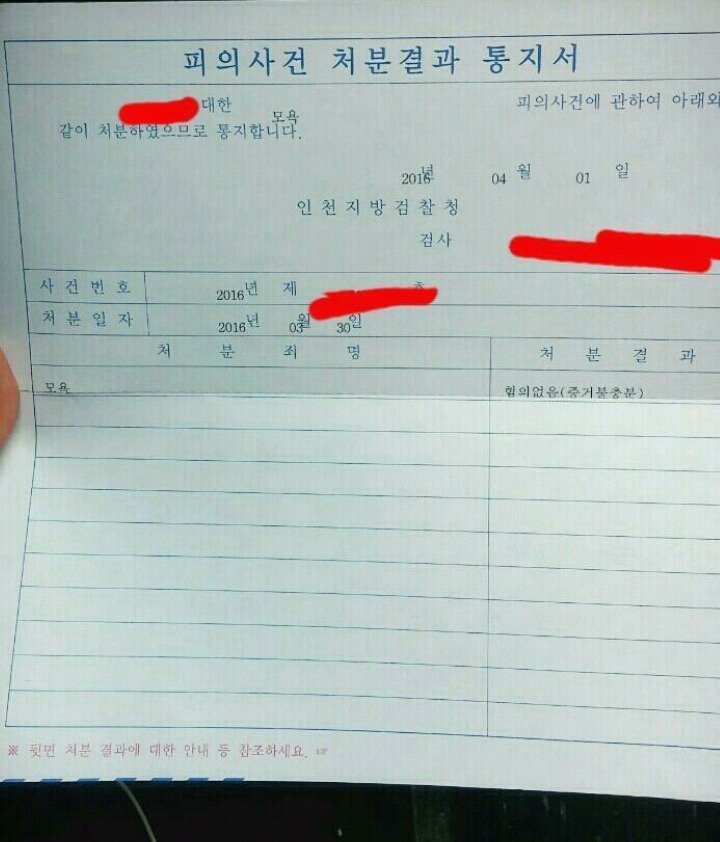 피의사건 처분결과 통지서
대한 모욕 피의사건에 관하여 아래와
같이 처분하였으므로 통지합니다.
2016년 04월 01일
인천지방검찰청
검사
사건번호 2016년 제 호
처분일자 2016년 03월 30일
처분죄명 처분결과
모욕 혐의없음(증거불충분)
※ 뒷면 처분 결과에 대한 안내 등 참조하세요. ☞